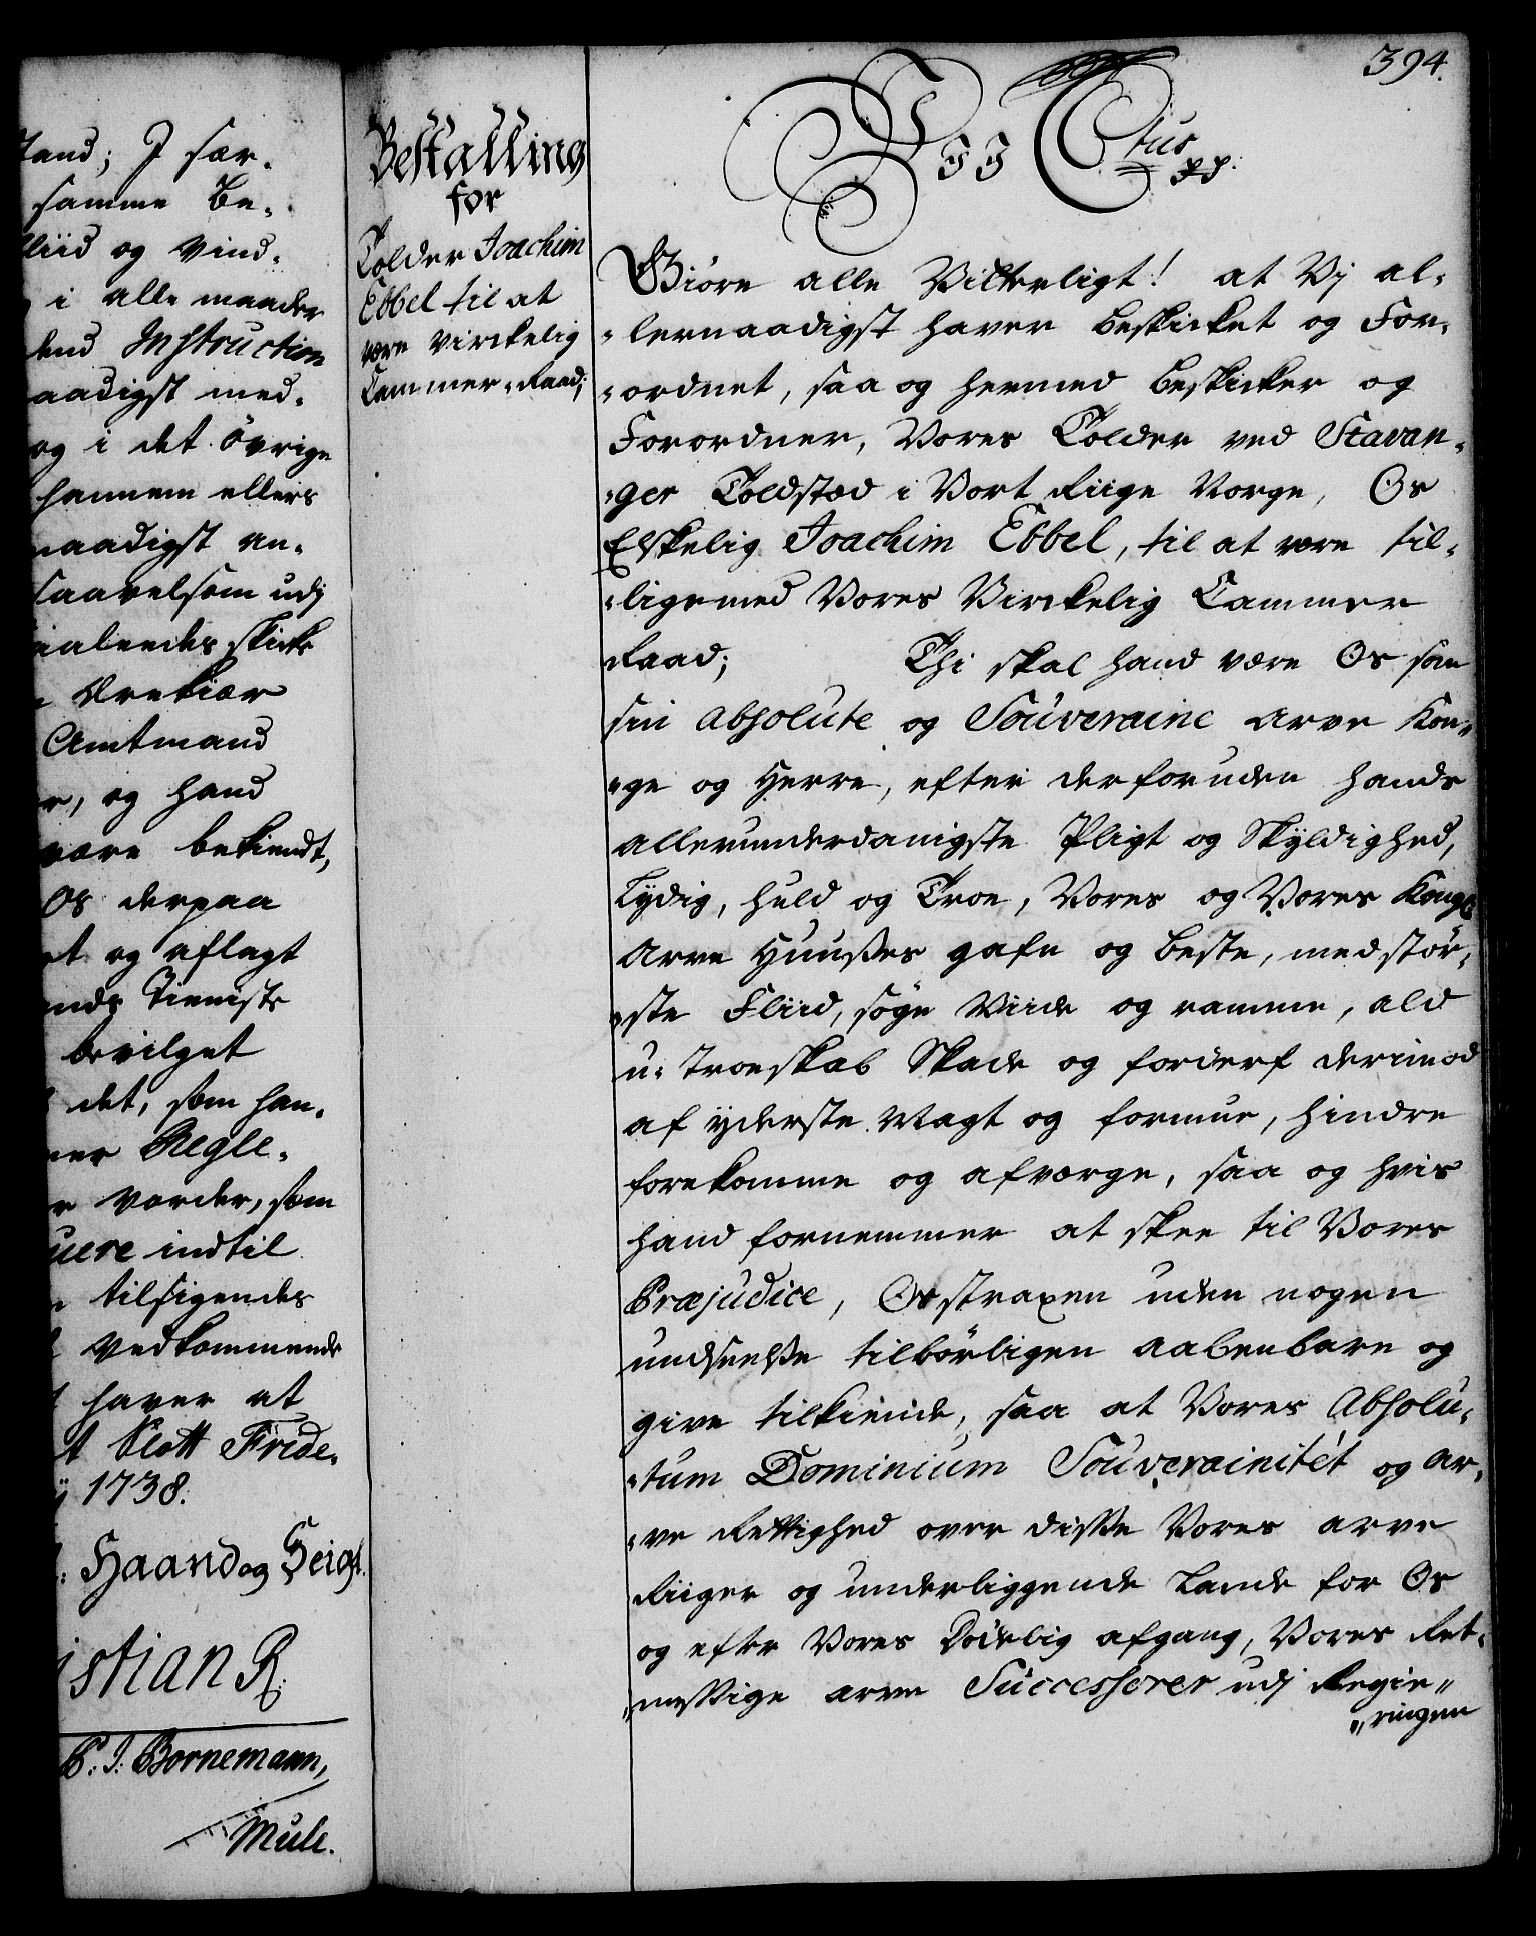 tand; I sær-
samme Be-
Fliid og Vind-
i alle maader
dend Instruction
naadigst med-
og i det övrige
hannem ellers
naadigst an-
saavelsom udj
skicke
Amtmand
og hand
være bekiendt,
Os derpaa
og aflagt
Tieniste
bevilget
det, som han-
Regle-
vorder, som
indtil
tilsigendes
Vedkommende
haver at
Slott Fride-
1738.
Haand og Seigl.
istian R.
P. J. Bornemann,
Mule.
Bestalling
for
Tolder Joachim
Ebbel til at
være virckelig
Cammer-Raad;
394.
VII Ctus pp:
Giöre alle Vitterligt! at Vj al-
-lernaadigst haver beskicket og For-
-ordnet, saa og hermed beskicker og
Forordner, Vores Tolder ved Stavan-
-ger Toldstæd i Vort Riige Norge, Os
Elskelig Joachim Ebbel, til at være til-
-ligemed Vores Virckelig Cammer
Raad; Thi skal hand være Os som
sin absolute og Souveraine arve Kon-
-ge og Herre, efter derforuden hands
allerunderdanigste Pligt og Skÿldighed,
Lydig, huld og Troe, Vores og Vores Kongl.
Arve Huuses gafn og beste, med stör-
-ste Fliid, söge Viide og ramme, ald
u-Troeskab Skade og forderf derimod
af ÿderste Magt og formue, hindre
forekomme og afværge, saa og hvis
hand fornemmer at skee til Vores
Præjudice, Os straxen uden nogen
undseelse tilbörligen aabenbare og
give tilkiende, saa at Vores Absolu-
-tum Dominium Souverainitét og ar-
-ve Rettighed over disse Vores arve
Riiger og underliggende Lande for Os
og efter Vores Dödelig afgang, Vores Ret-
-messige arve Successorer udj Regie-
-ringen